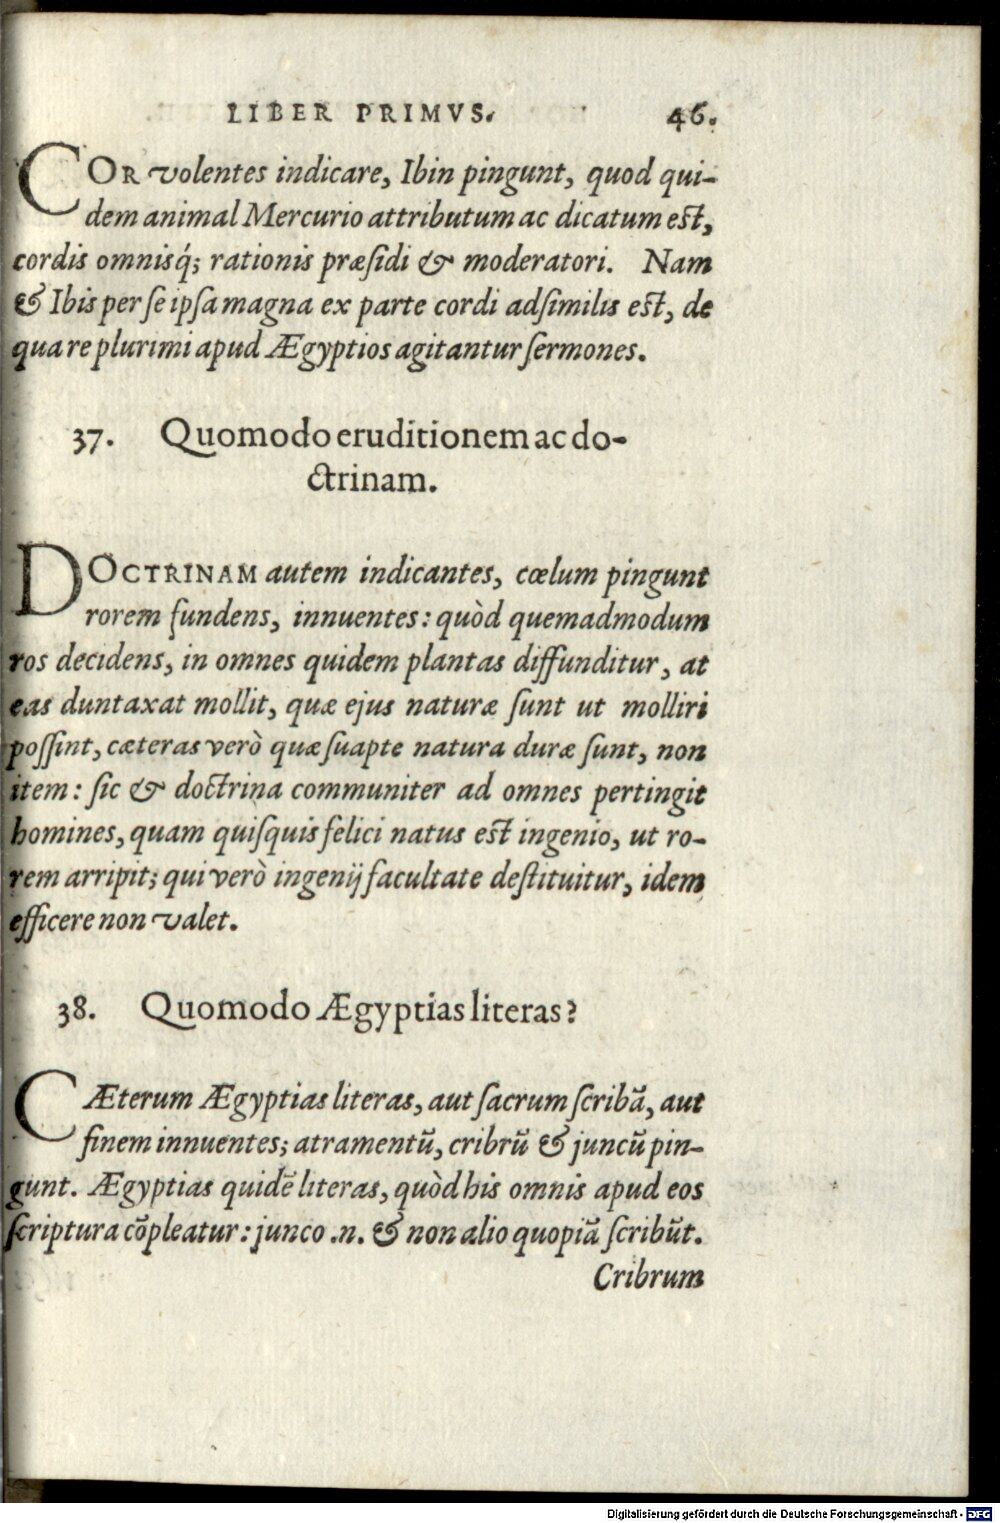 LIBER PRIMVS. 46.
COR volentes indicare, Ibin pingunt, quod qui-
dem animal Mercurio attributum ac dicatum est,
cordis omnisq́; rationis præsidi & moderatori. Nam
& Ibis per se ipsa magna ex parte cordi adsimilis est, de
qua re plurimi apud Ægyptios agitantur sermones.
37. Quomodo eruditionem ac do-
ctrinam.
DOCTRINAM autem indicantes, cœlum pingunt
rorem fundens, innuentes: quòd quemadmodum
ros decidens, in omnes quidem plantas diffunditur, at
eas duntaxat mollit, quæ ejus naturæ sunt ut molliri
possint, cæteras verò quæ suapte natura duræ sunt, non
item: sic & doctrina communiter ad omnes pertingit
homines, quam quisquis felici natus est ingenio, ut ro-
rem arripit; qui verò ingenij facultate destituitur, idem
efficere non valet.
38. Quomodo Ægyptias literas?
CÆterum Ægyptias literas, aut sacrum scribā, aut
finem innuentes; atramentū, cribrū & juncū pin-
gunt. Ægyptias quidē literas, quòd his omnis apud eos
scriptura cōpleatur: junco .n. & non alio quopiā scribūt.
Cribrum
Digitalisierung gefördert durch die Deutsche Forschungsgemeinschaft - DFG